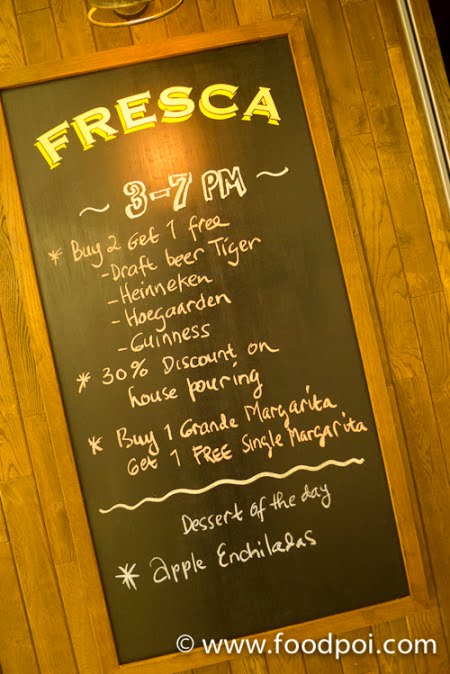 FRESCA
~ 3-7 PM ~
* Buy 2 Get 1 free
-Draft beer Tiger
-Heinneken
-Hoegaarden
-Guinness
* 30% Discount on
house pouring
* Buy 1 Grande Margarita
Get 1 FREE Single Margarita
Dessert of the day
* apple Enchiladas
© www.foodpoi.com